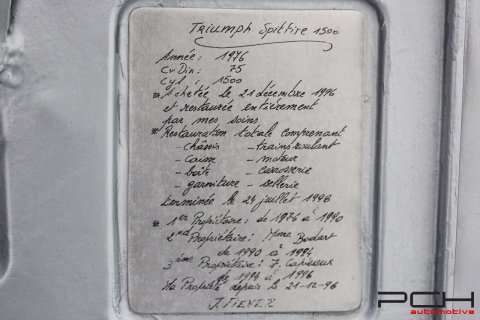 Triumph Spitfire 1500
Année: 1976
Cv Din: 75
Cyl: 1500
* Achetée le 21 décembre 1996
et restaurée entièrement
par mes soins
* Restauration totale comprenant
- châssis - trains roulant
- caisse - moteur
- boîte - carrosserie
- garniture - sellerie
terminée le 24 juillet 1998
* 1er Propriétaire: de 1976 à 1990
2nd Propriétaire: Mme Bodart
de 1990 à 1994
3ème Propriétaire: J.
de 1994 à 1996
Ma Propriété depuis le 21-12-96
PCH
automotive